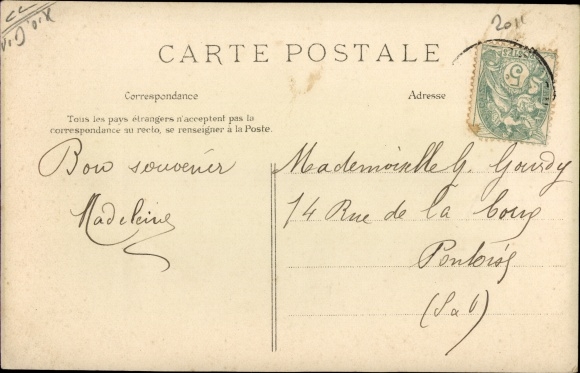 2011
CARTE POSTALE
Correspondance
Adresse
Tous les pays étrangers n'acceptent pas la
correspondance au recto, se renseigner à la Poste.
Bon souvenir
Madeleine
Mademoiselle G. Gourdy
14 Rue de la Coup
Pontoise
(S&O)